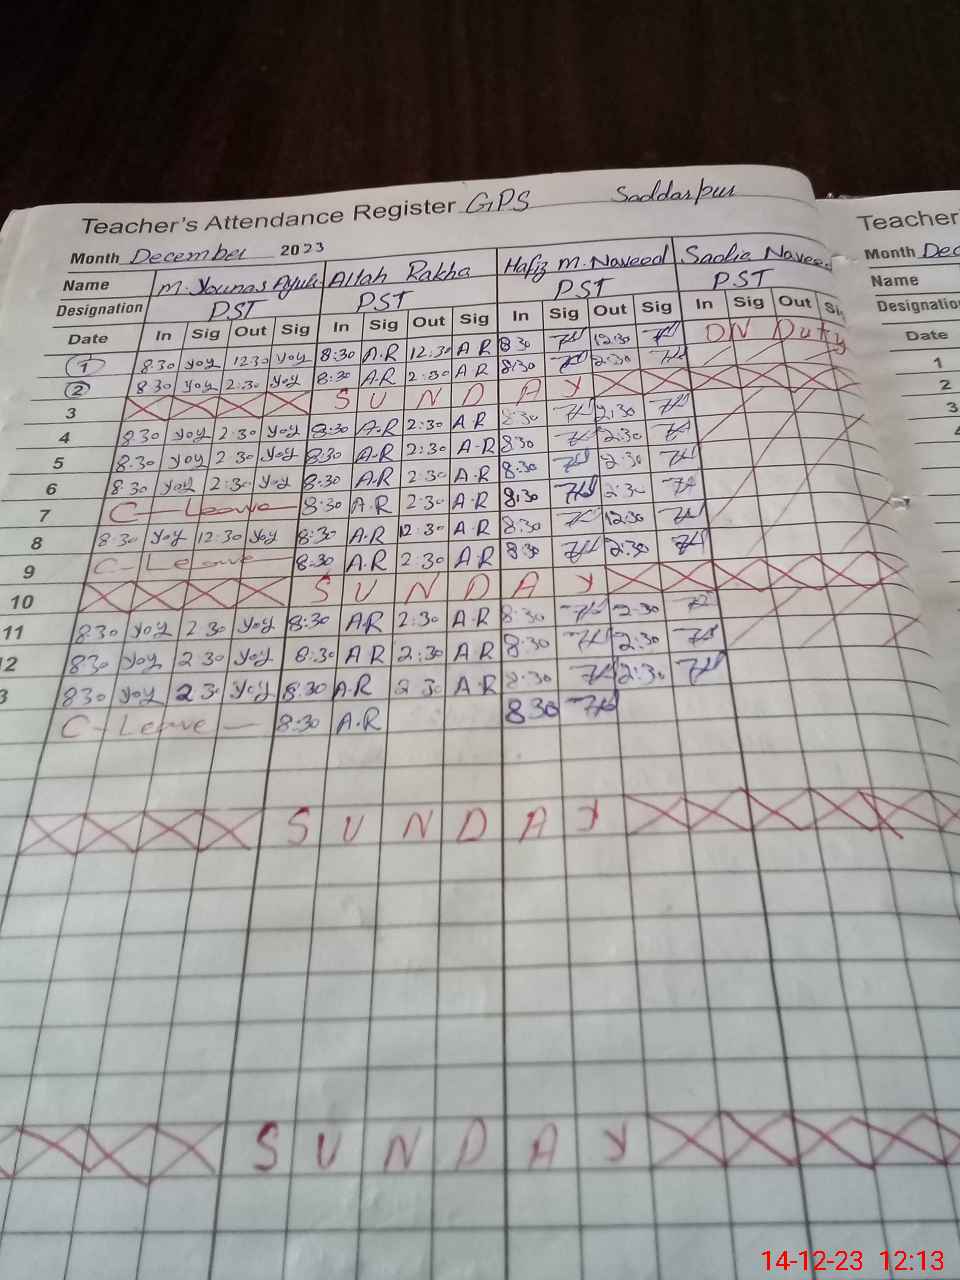 Teacher's Attendance Register GPS Saddarpur
Month December 2023
Name M. Younas Ayub Allah Rakha Hafiz M. Naveed Sadia Naveed
Designation PST PST PST PST
Date In Sig Out Sig In Sig Out Sig In Sig Out Sig In Sig Out Sig
1 8:30 yoy 12:30 yoy 8:30 A.R 12:30 A R 8:30 12:30 ON Duty
2 8:30 yoy 2:30 yoy 8:30 A.R 2:30 A R 8:30 2:30
3 S U N D A Y
4 8:30 yoy 2:30 yoy 8:30 A.R 2:30 A.R 8:30 2:30
5 8:30 yoy 2:30 yoy 8:30 A.R 2:30 A.R 8:30 2:30
6 8:30 yoy 2:30 yoy 8:30 A.R 2:30 A.R 8:30 2:30
7 C-Leave 8:30 A.R 2:30 A.R 8:30 2:30
8 8:30 yoy 12:30 yoy 8:30 A.R 12:30 A.R 8:30 12:30
9 C-Leave 8:30 A.R 2:30 A.R 8:30 2:30
10 S U N D A Y
11 8:30 yoy 2:30 yoy 8:30 A.R 2:30 A.R 8:30 2:30
2 8:30 yoy 2:30 yoy 8:30 A R 2:30 A.R 8:30 2:30
3 8:30 yoy 2:30 yoy 8:30 A.R 2:30 A.R 8:30 2:30
C-Leave 8:30 A.R 8:30
S U N D A Y
S U N D A Y
Teacher
Month Dec
Name
Designatio
Date
1
2
3
14-12-23 12:13